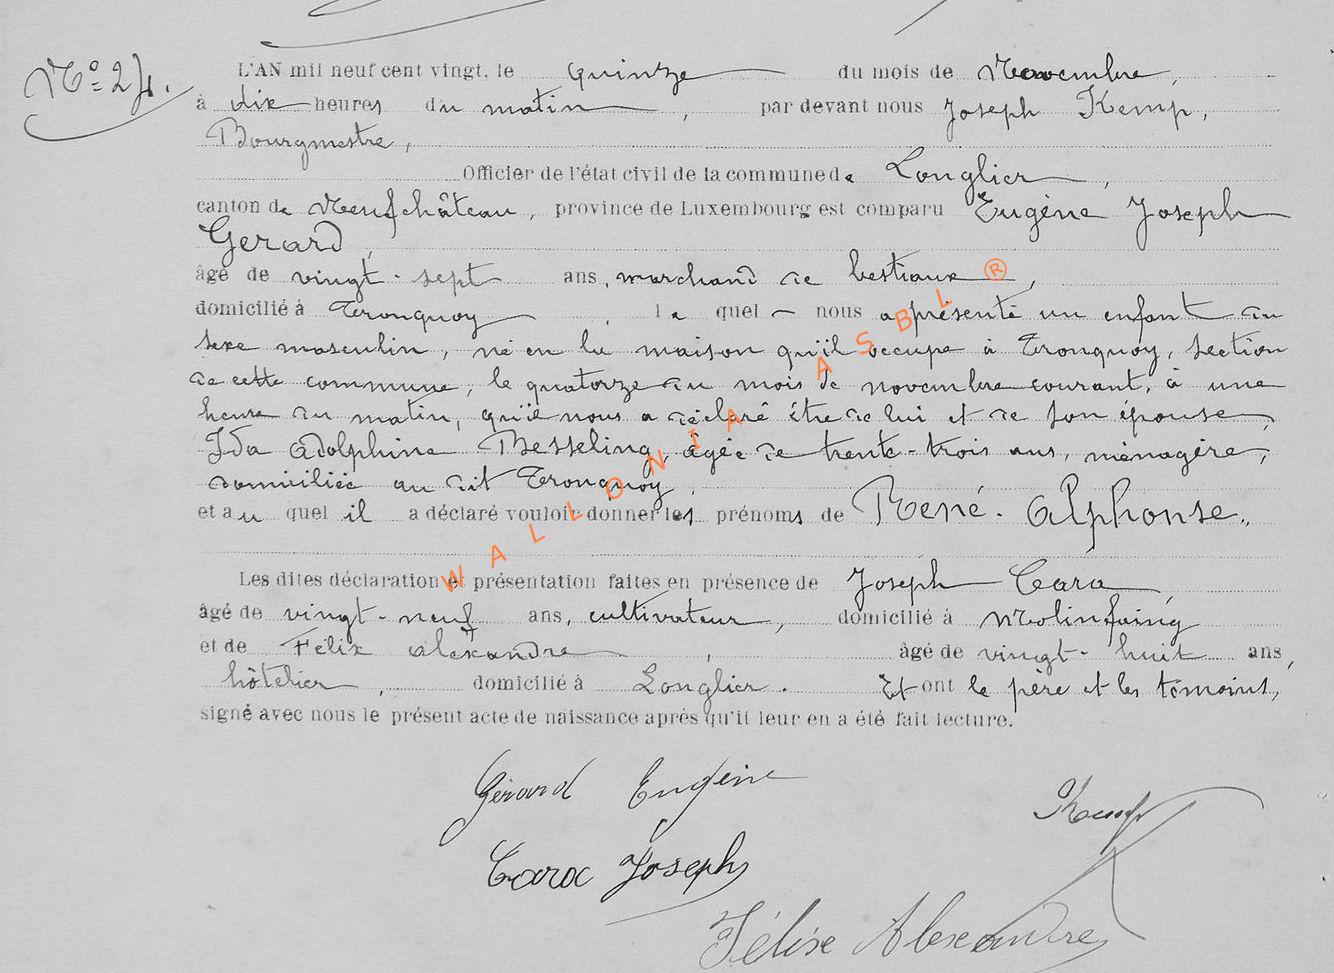 No 24.
L'AN mil neuf cent vingt, le quinze du mois de Novembre,
à dix heures du matin, par devant nous Joseph Kemp,
Bourgmestre,
Officier de l'état civil de la commune de Longlier,
canton de Neufchâteau, province de Luxembourg est comparu Eugène Joseph
Gerard,
âgé de vingt-sept ans, marchand de bestiaux,
domicilié à Tronquoy, le quel nous a présenté un enfant du
sexe masculin, né en la maison qu'il occupe à Tronquoy, section
de cette commune, le quatorze du mois de novembre courant, à une
heure du matin, qu'il nous a déclaré être de lui et de son épouse,
Ida Adolphine Besseling, âgée de trente-trois ans, ménagère,
domiciliée au dit Tronquoy,
et au quel il a déclaré vouloir donner les prénoms de René-Alphonse.
Les dites déclaration et présentation faites en présence de Joseph Cara
âgé de vingt-neuf ans, cultivateur, domicilié à Molinfaing
et de Félix Alexandre, âgé de vingt-huit ans,
hôtelier, domicilié à Longlier. Et ont le père et les témoins,
signé avec nous le présent acte de naissance après qu'il leur en a été fait lecture.
Gérard Eugène
Kemp
Joseph
Alexandre
WALLONIA ASBL ®